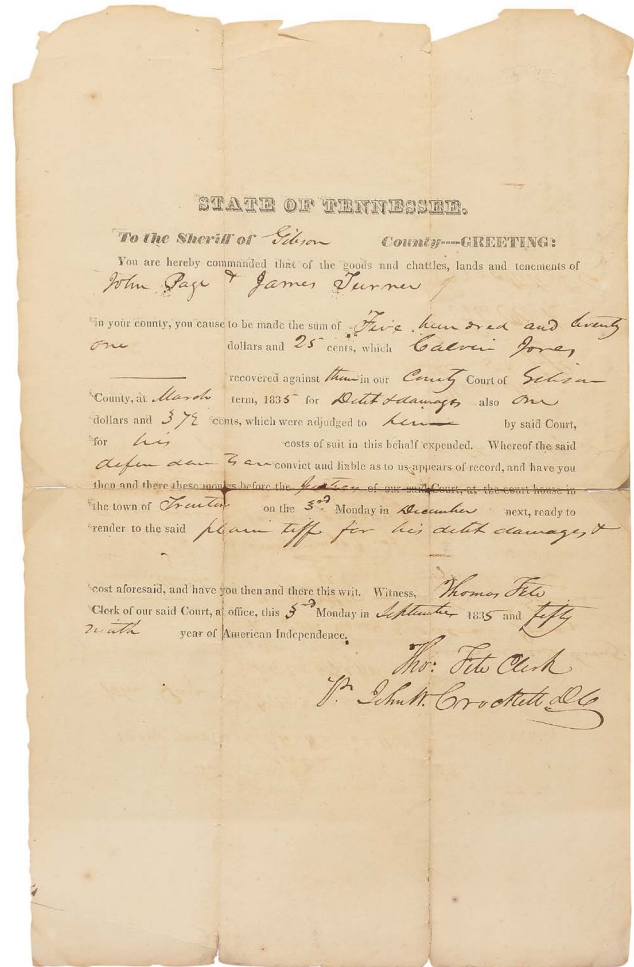 STATE OF TENNESSEE.
To the Sheriff of Gibson County----GREETING:
You are hereby commanded that of the goods and chattles, lands and tenements of
John Page & James Turner
in your county, you cause to be made the sum of Five hundred and twenty
one dollars and 25 cents, which Calvin Jones
recovered against them in our County Court of Gibson
County, at March term, 1835 for Debt & damages also one
dollars and 37½ cents, which were adjudged to him by said Court,
for his costs of suit in this behalf expended. Whereof the said
defendants are convict and liable as to us appears of record, and have you
then and there these monies before the Justices of our said Court, at the court house in
the town of Trenton on the 3rd Monday in December next, ready to
render to the said plaintiff for his debt damages &
cost aforesaid, and have you then and there this writ. Witness, Thomas Fite
Clerk of our said Court, at office, this 3rd Monday in September 1835 and fifty
ninth year of American Independence.
Thos. Fite Clerk
Pr. John W. Crockett D C